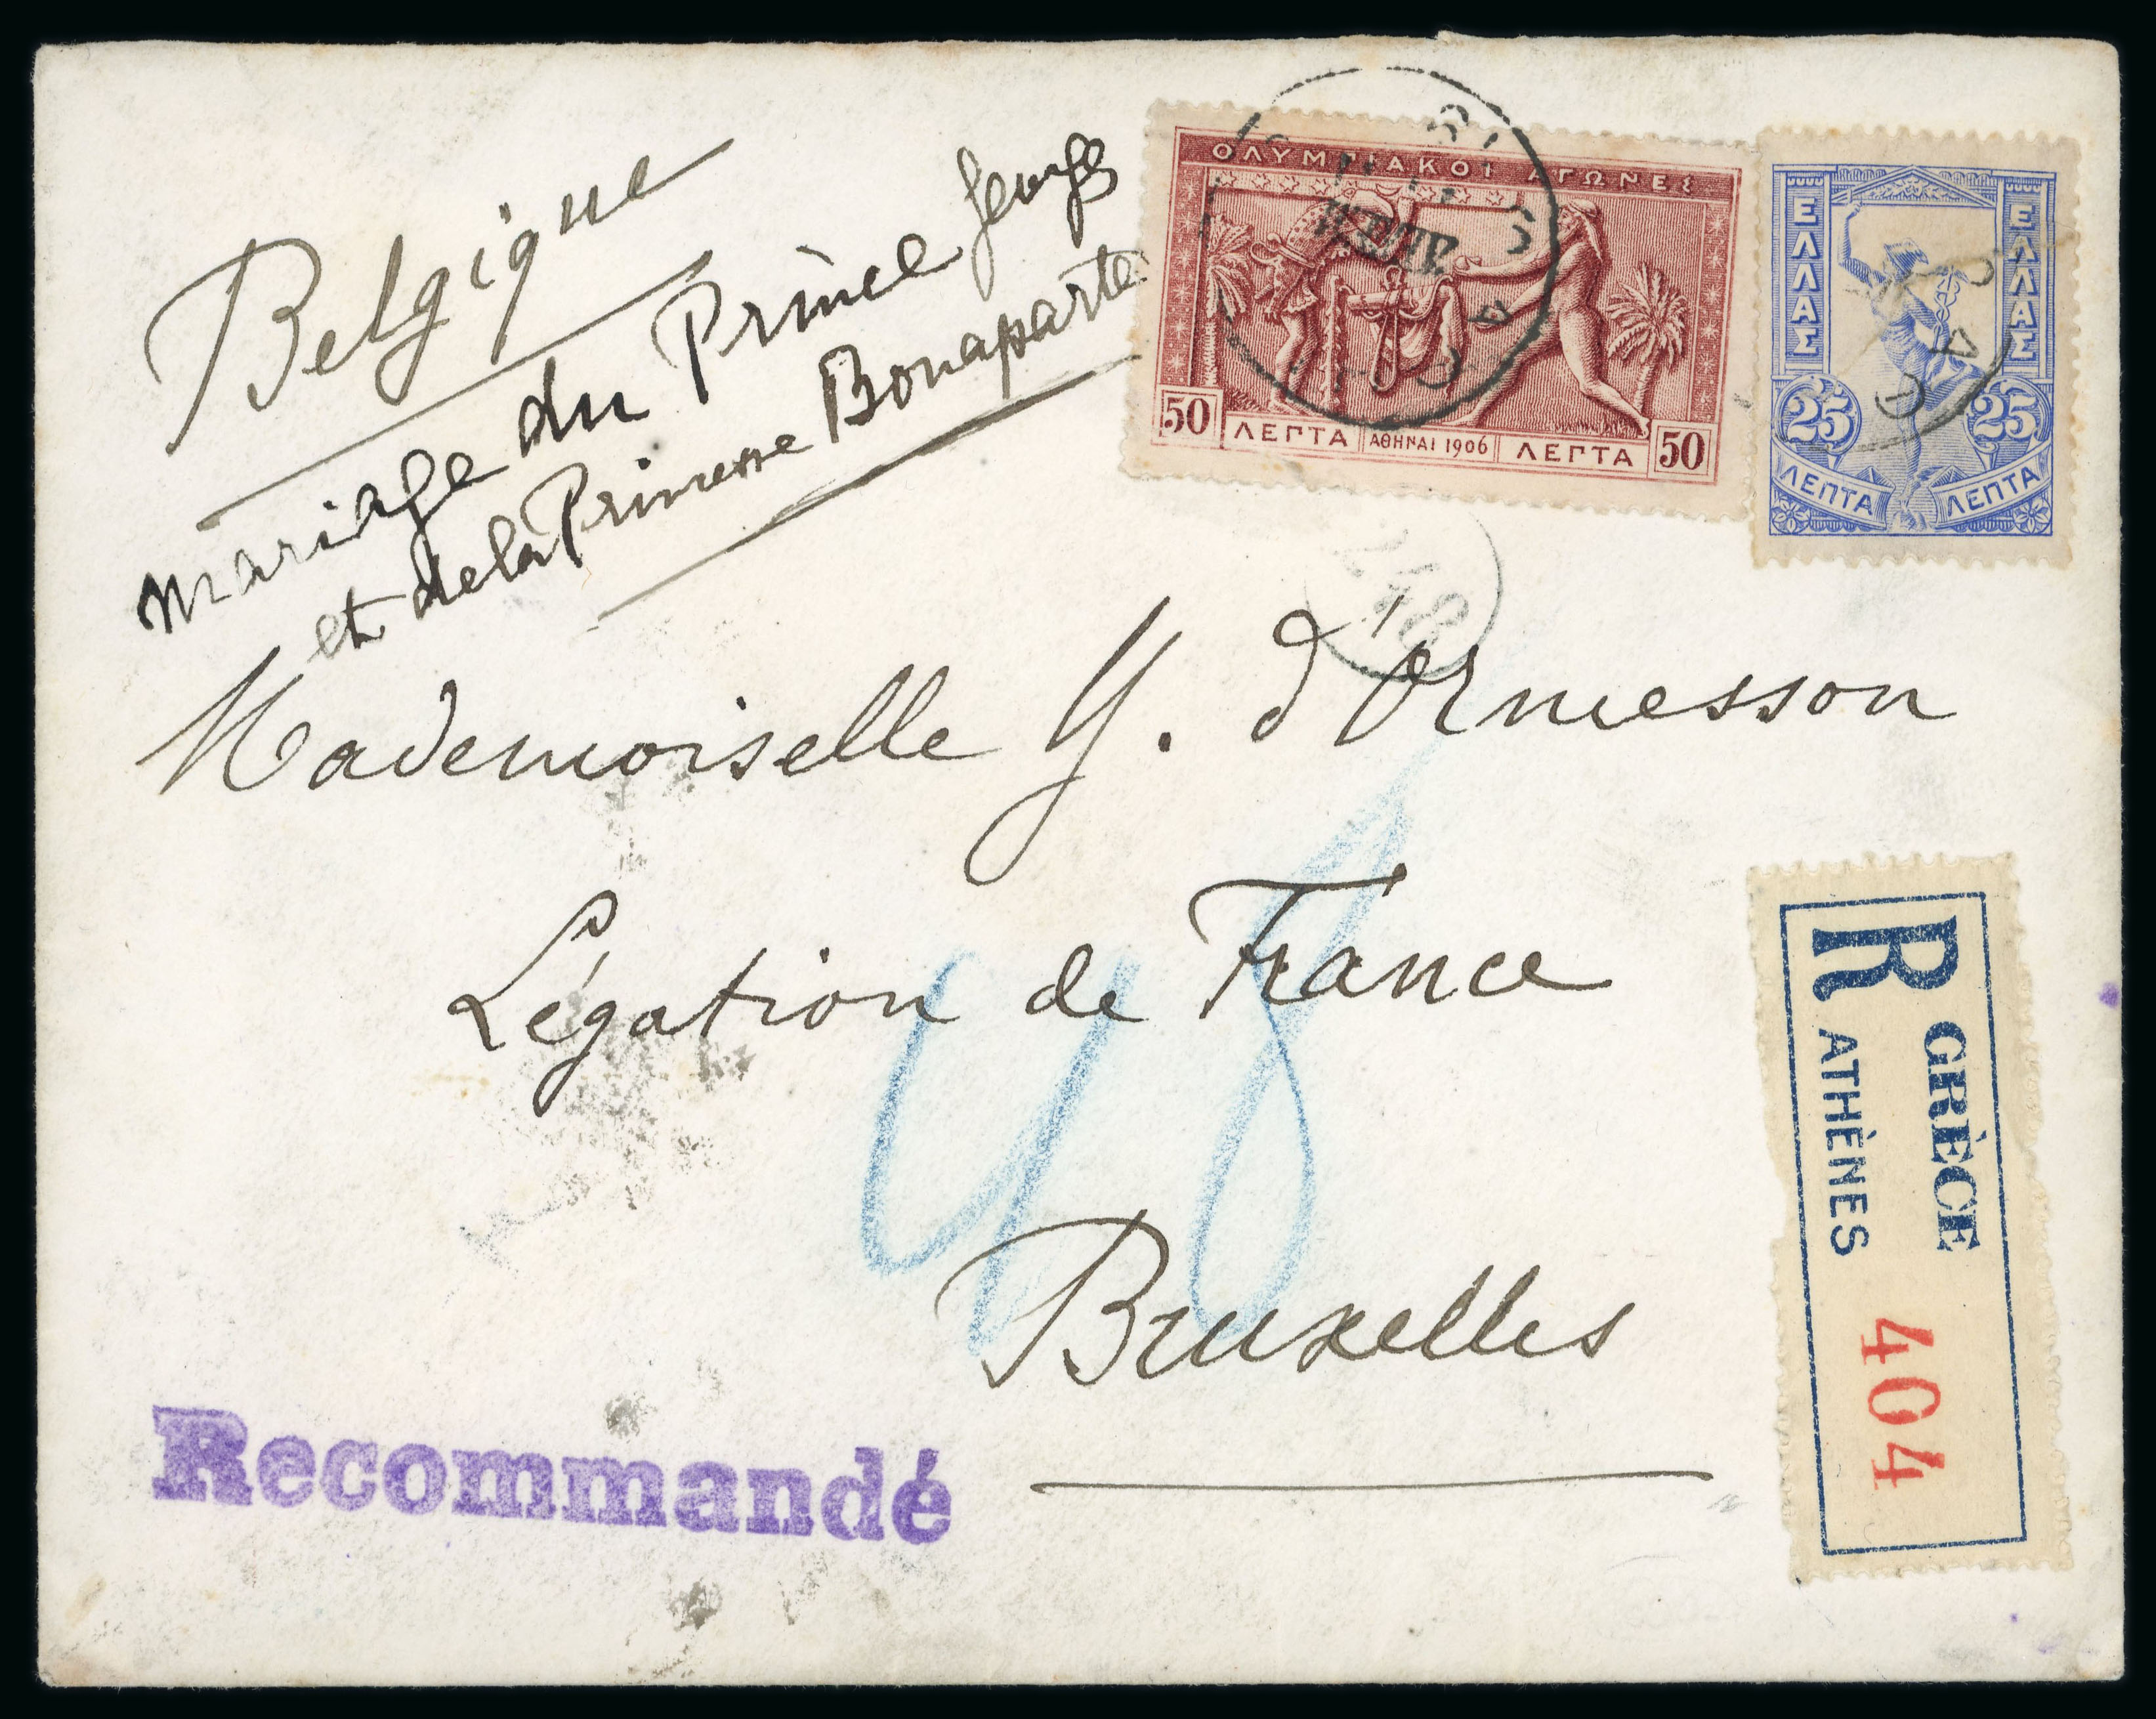 Belgique
mariage du Prince Georges
et de la Princesse Bonaparte
ΟΛΥΜΠΙΑΚΟΙ ΑΓΩΝΕΣ
50 ΛΕΠΤΑ ΑΘΗΝΑΙ 1906 ΛΕΠΤΑ 50
ΕΛΛΑΣ ΕΛΛΑΣ
25 25
ΛΕΠΤΑ ΛΕΠΤΑ
Mademoiselle Y. d'Ormesson
Légation de France
Bruxelles
48
Recommandé
R GRÈCE
ATHÈNES
404